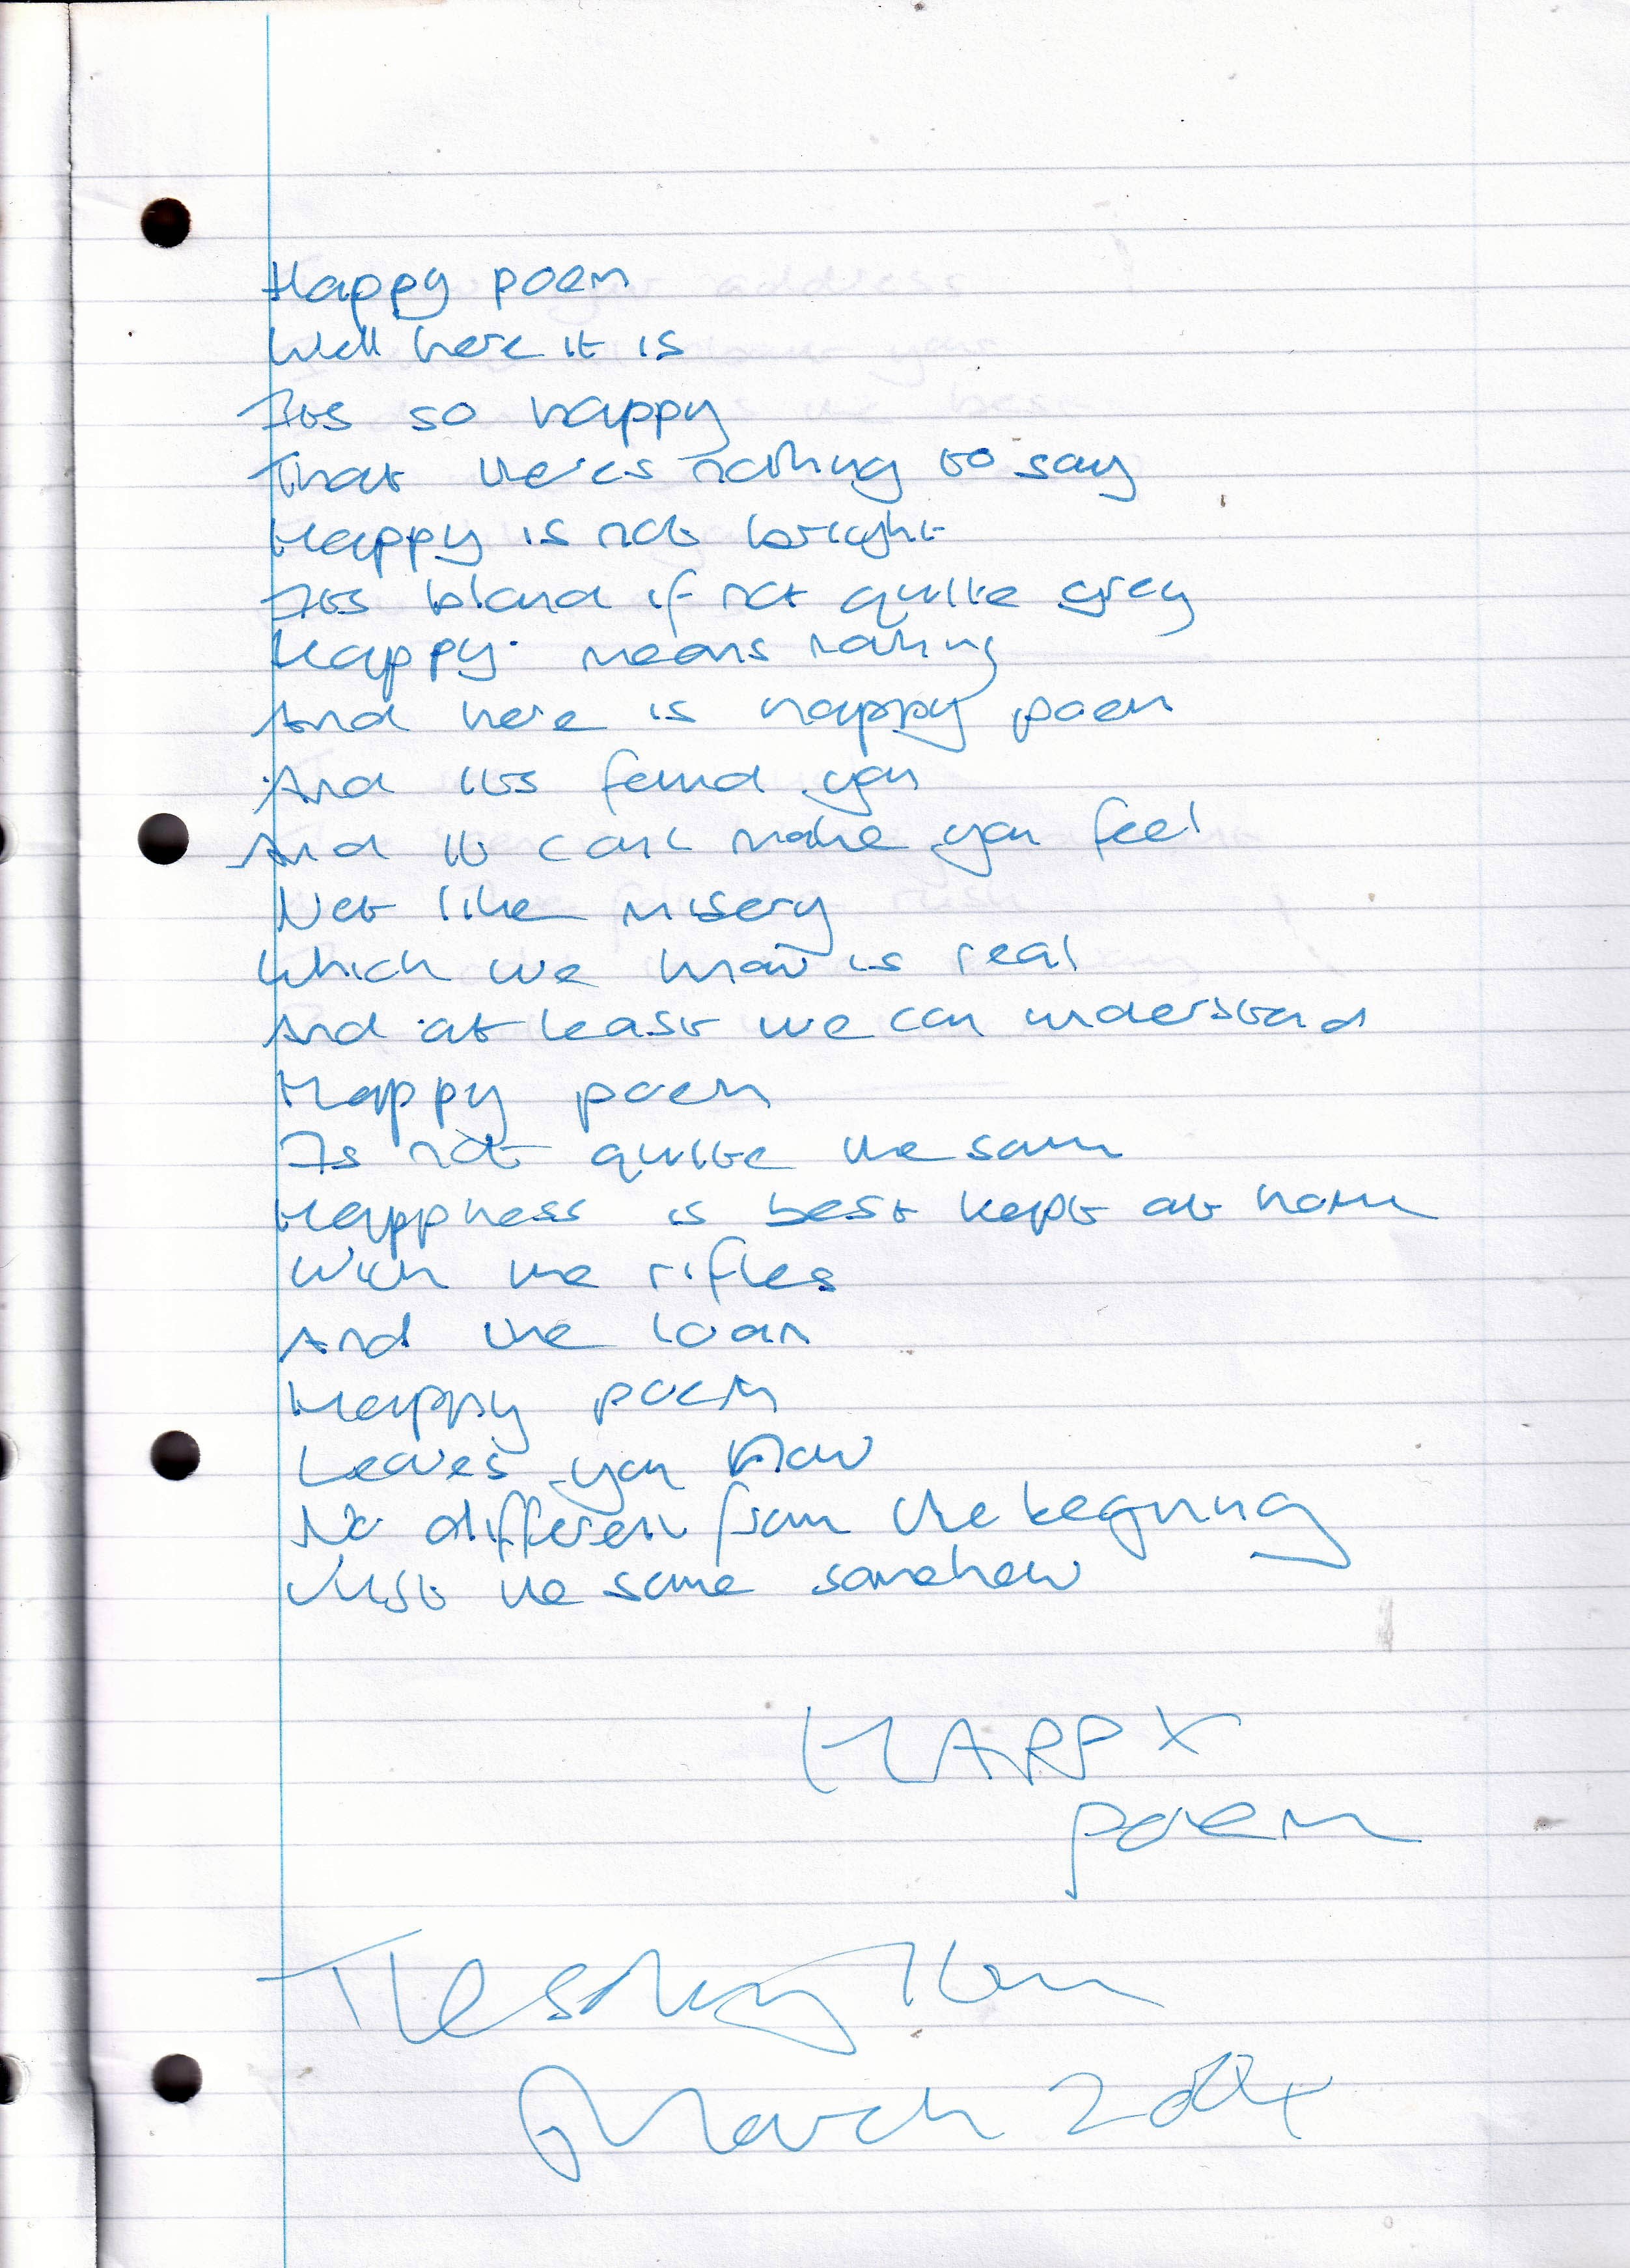 Happy poem
Well here it is
Its so happy
That theres nothing to say
Happy is not bright
Its bland if not quite grey
Happy means nothing
And here is happy poem
And its found you
And it cant make you feel
Not like misery
Which we know is real
And at least we can understand
Happy poem
Is not quite the same
Happness is best kept at home
With the rifles
And the loan
Happy poem
Leaves you now
No different from the beginning
Just the same somehow
HAPPY
poem
March